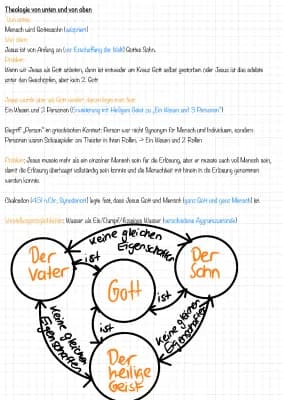 Theologie von unten und von oben
Von unten:
Mensch wird Gottessohn (adoptiert)
Von oben:
Jesus ist von Anfang an (vor Erschaffung der Welt) Gottes Sohn.
Problem:
Wenn wir Jesus als Gott anbeten, dann ist entweder am Kreuz Gott selbst gestorben oder Jesus ist das edelste
unter den Geschöpfen, aber kein 2. Gott
Jesus wurde aber als Gott verehrt, darum sagte man hier:
Ein Wesen und 2 Personen (Erweiterung mit Heiligem Geist zu „Ein Wesen und 3 Personen")
Begriff „Person" im griechischen Kontext: Person war nicht Synonym für Mensch und Individuum, sondern
Personen waren Schauspieler am Theater in ihren Rollen. → Ein Wesen und 2 Rollen
Problem: Jesus musste mehr als ein einzelner Mensch sein für die Erlösung, aber er musste auch voll Mensch sein,
damit die Erlösung überhaupt vollständig sein konnte und die Menschheit mit hinein in die Erlösung genommen
werden konnte.
Chalcedon (451 n.Chr., Synodenort) legte fest, dass Jesus Gott und Mensch (ganz Gott und ganz Mensch) ist.
Vorstellungsmöglichkeiten: Wasser als Eis/Dampf/flüssiges Wasser (verschiedene Aggregatzustände)
keine gleichen
Eigenschaften
Der
Vater
Der
Sohn
ist
Gott
ist
keine gleichen
Eigenschaften
ist
keine gleichen
Eigenschaften
Der
heilige
Geist